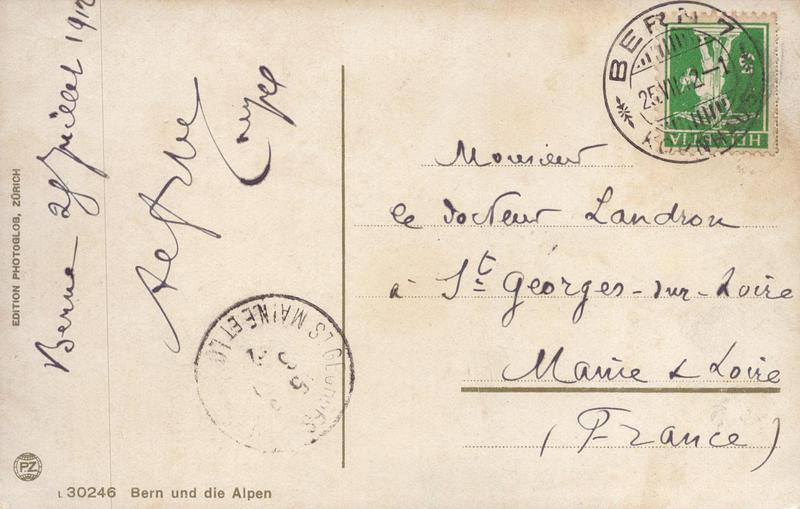 Berne 25 juillet 1912
EDITION PHOTOGLOB, ZÜRICH
BERN 7
25.VII.12-1
HELVETIA
Monsieur
le docteur Landron
à St Georges-sur-Loire
Maine & Loire
(France)
MAINE ET LO
PZ
L 30246 Bern und die Alpen